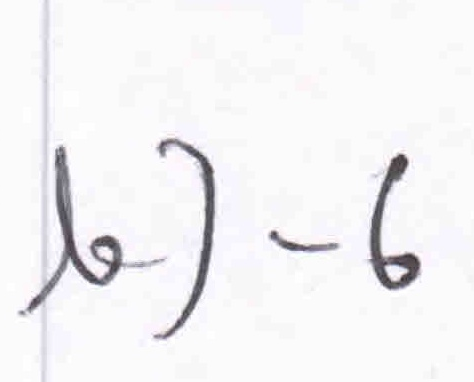 b) - 6